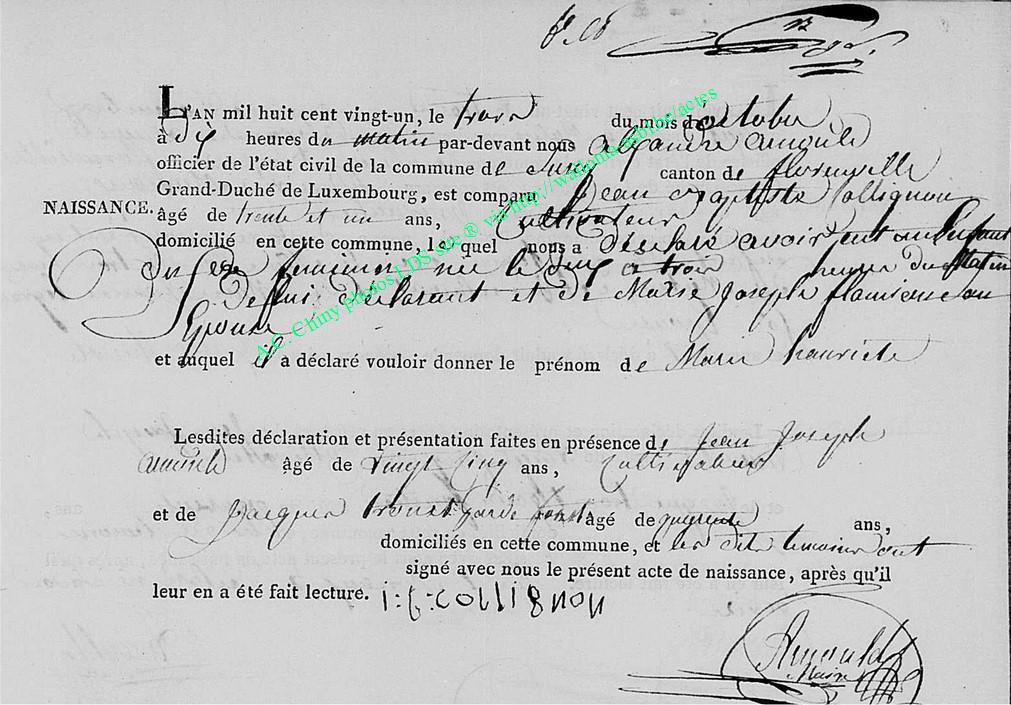 L'AN mil huit cent vingt-un, le trois du mois d'octobre
à dix heures du matin par-devant nous alexandre arnould
officier de l'état civil de la commune de canton de florenville
Grand-Duché de Luxembourg, est comparu Jean Baptiste Collignon
NAISSANCE. âgé de trente et un ans, Cultivateur
domicilié en cette commune, lequel nous a déclaré avoir un Enfant
du sexe feminin née le deux a trois heures du Matin
de lui déclarant et de Marie Joseph son
Epouse
et auquel il a déclaré vouloir donner le prénom de Marie
Lesdites déclaration et présentation faites en présence de Jean Joseph
arnould âgé de vingt cinq ans, Cultivateur
et de Jacques garde âgé de quarente ans,
domiciliés en cette commune, et les dits temoins ont
signé avec nous le présent acte de naissance, après qu'il
leur en a été fait lecture. i:b:collignon
Arnould
Maire
A.C. Chiny photos LDS site ® via http://wallonia.mbihe/actes